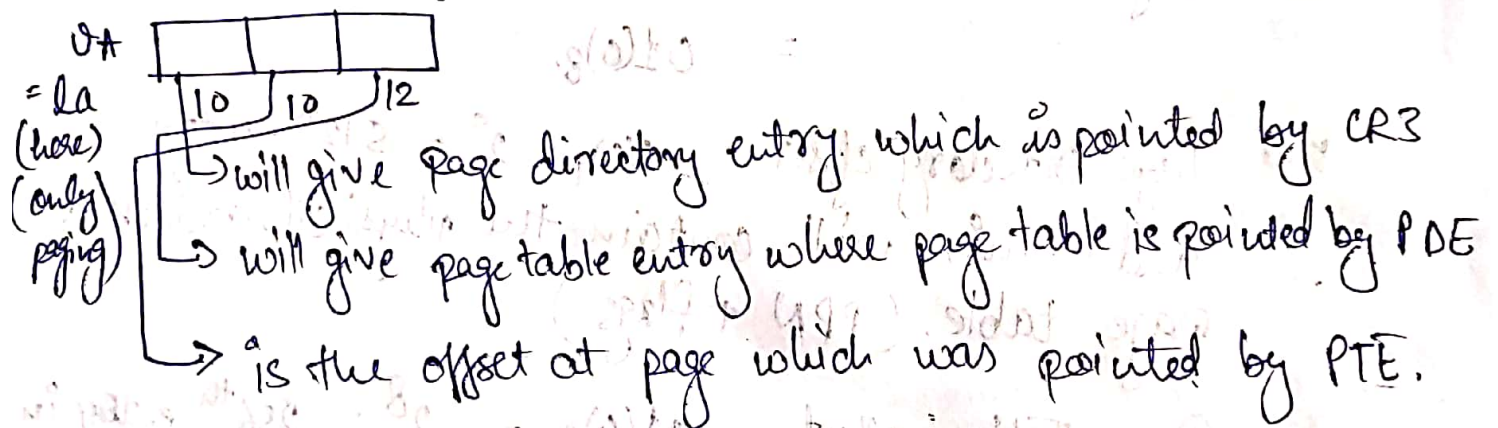 VA
= la
(here)
(only
paging)
10 10 12
will give page directory entry which is pointed by CR3
will give page table entry where page table is pointed by PDE
is the offset at page which was pointed by PTE.